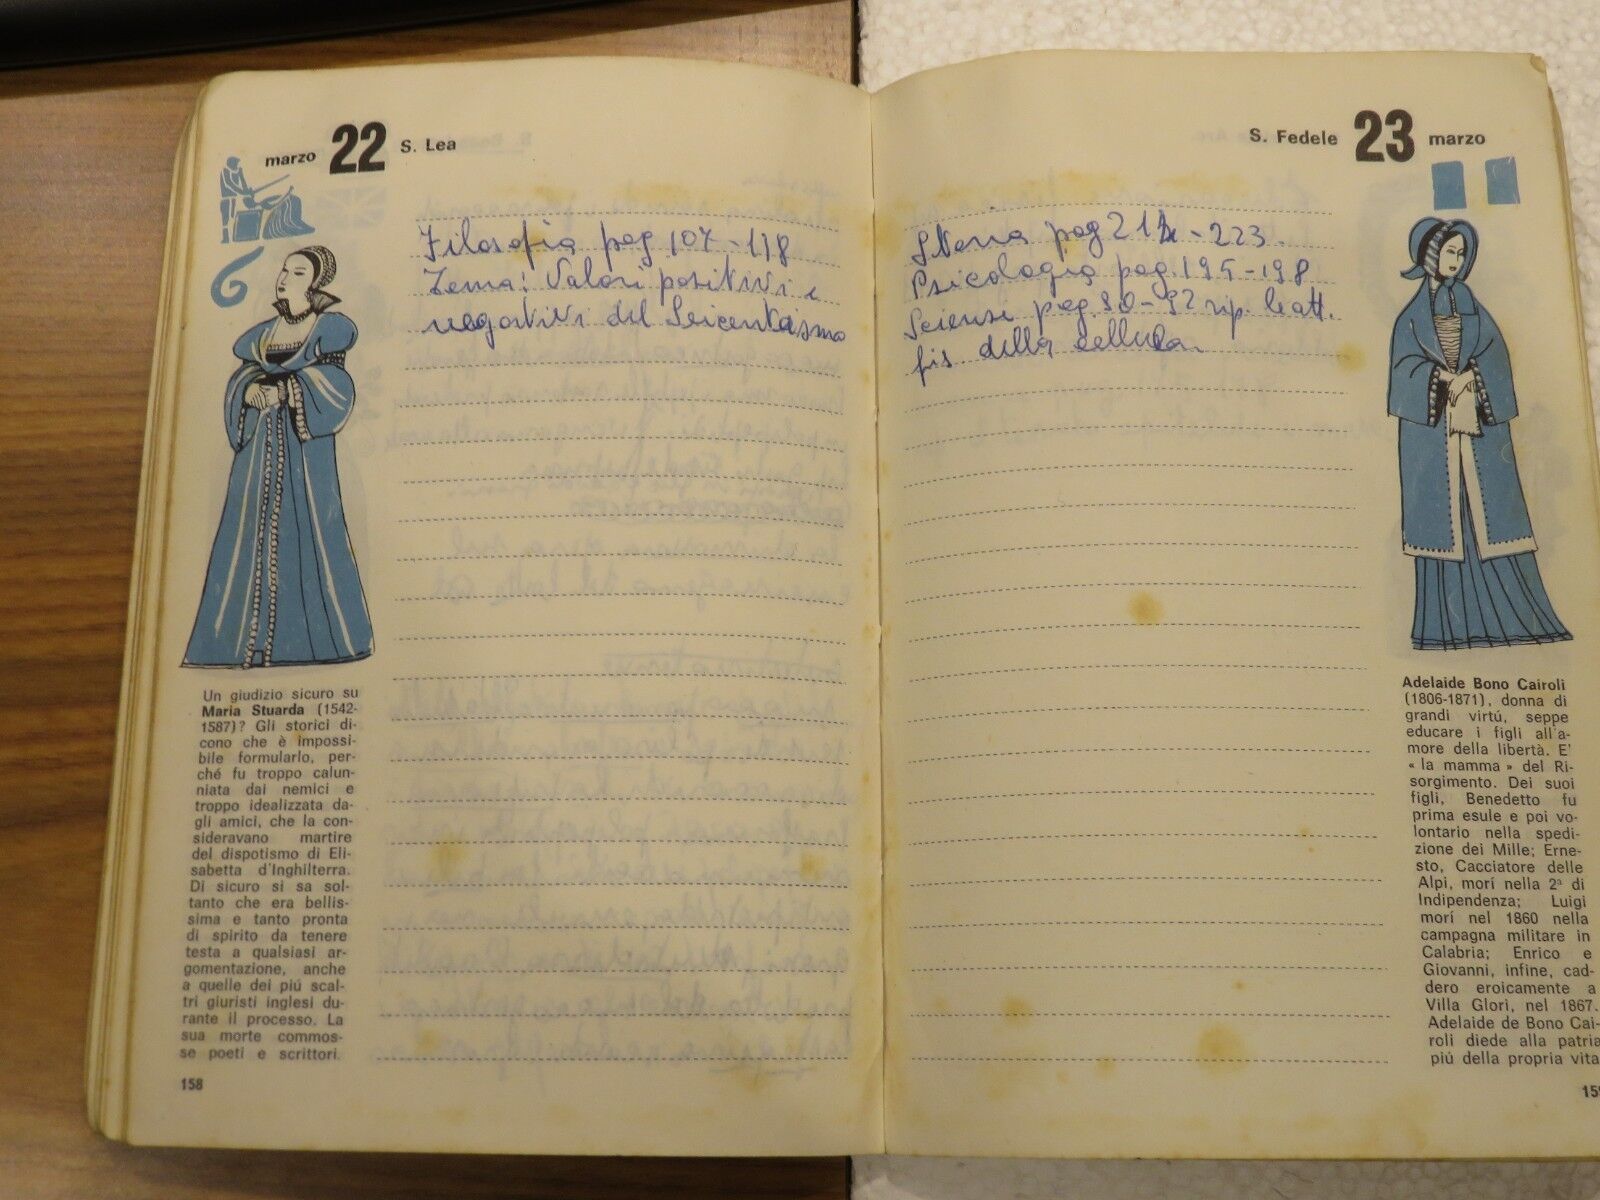 marzo 22 S. Lea
Filosofia pag 107-118
Tema: Valori positivi e
negativi del Seicentismo
Un giudizio sicuro su
Maria Stuarda (1542-
1587)? Gli storici di-
cono che è impossi-
bile formularlo, per-
ché fu troppo calun-
niata dai nemici e
troppo idealizzata da-
gli amici, che la con-
sideravano martire
del dispotismo di Eli-
sabetta d'Inghilterra.
Di sicuro si sa sol-
tanto che era bellis-
sima e tanto pronta
di spirito da tenere
testa a qualsiasi ar-
gomentazione, anche
a quelle dei piú scal-
tri giuristi inglesi du-
rante il processo. La
sua morte commos-
se poeti e scrittori.
158
S. Fedele 23 marzo
Storia pag 214-223.
Psicologia pag. 195-198
Scienze pag. 90-92 rip. le att.
fis della cellula.
Adelaide Bono Cairoli
(1806-1871), donna di
grandi virtú, seppe
educare i figli all'a-
more della libertà. E'
« la mamma » del Ri-
sorgimento. Dei suoi
figli, Benedetto fu
prima esule e poi vo-
lontario nella spedi-
zione dei Mille; Erne-
sto, Cacciatore delle
Alpi, morí nella 2ª di
Indipendenza; Luigi
morí nel 1860 nella
campagna militare in
Calabria; Enrico e
Giovanni, infine, cad-
dero eroicamente a
Villa Glori, nel 1867.
Adelaide de Bono Cai-
roli diede alla patria
piú della propria vita
159